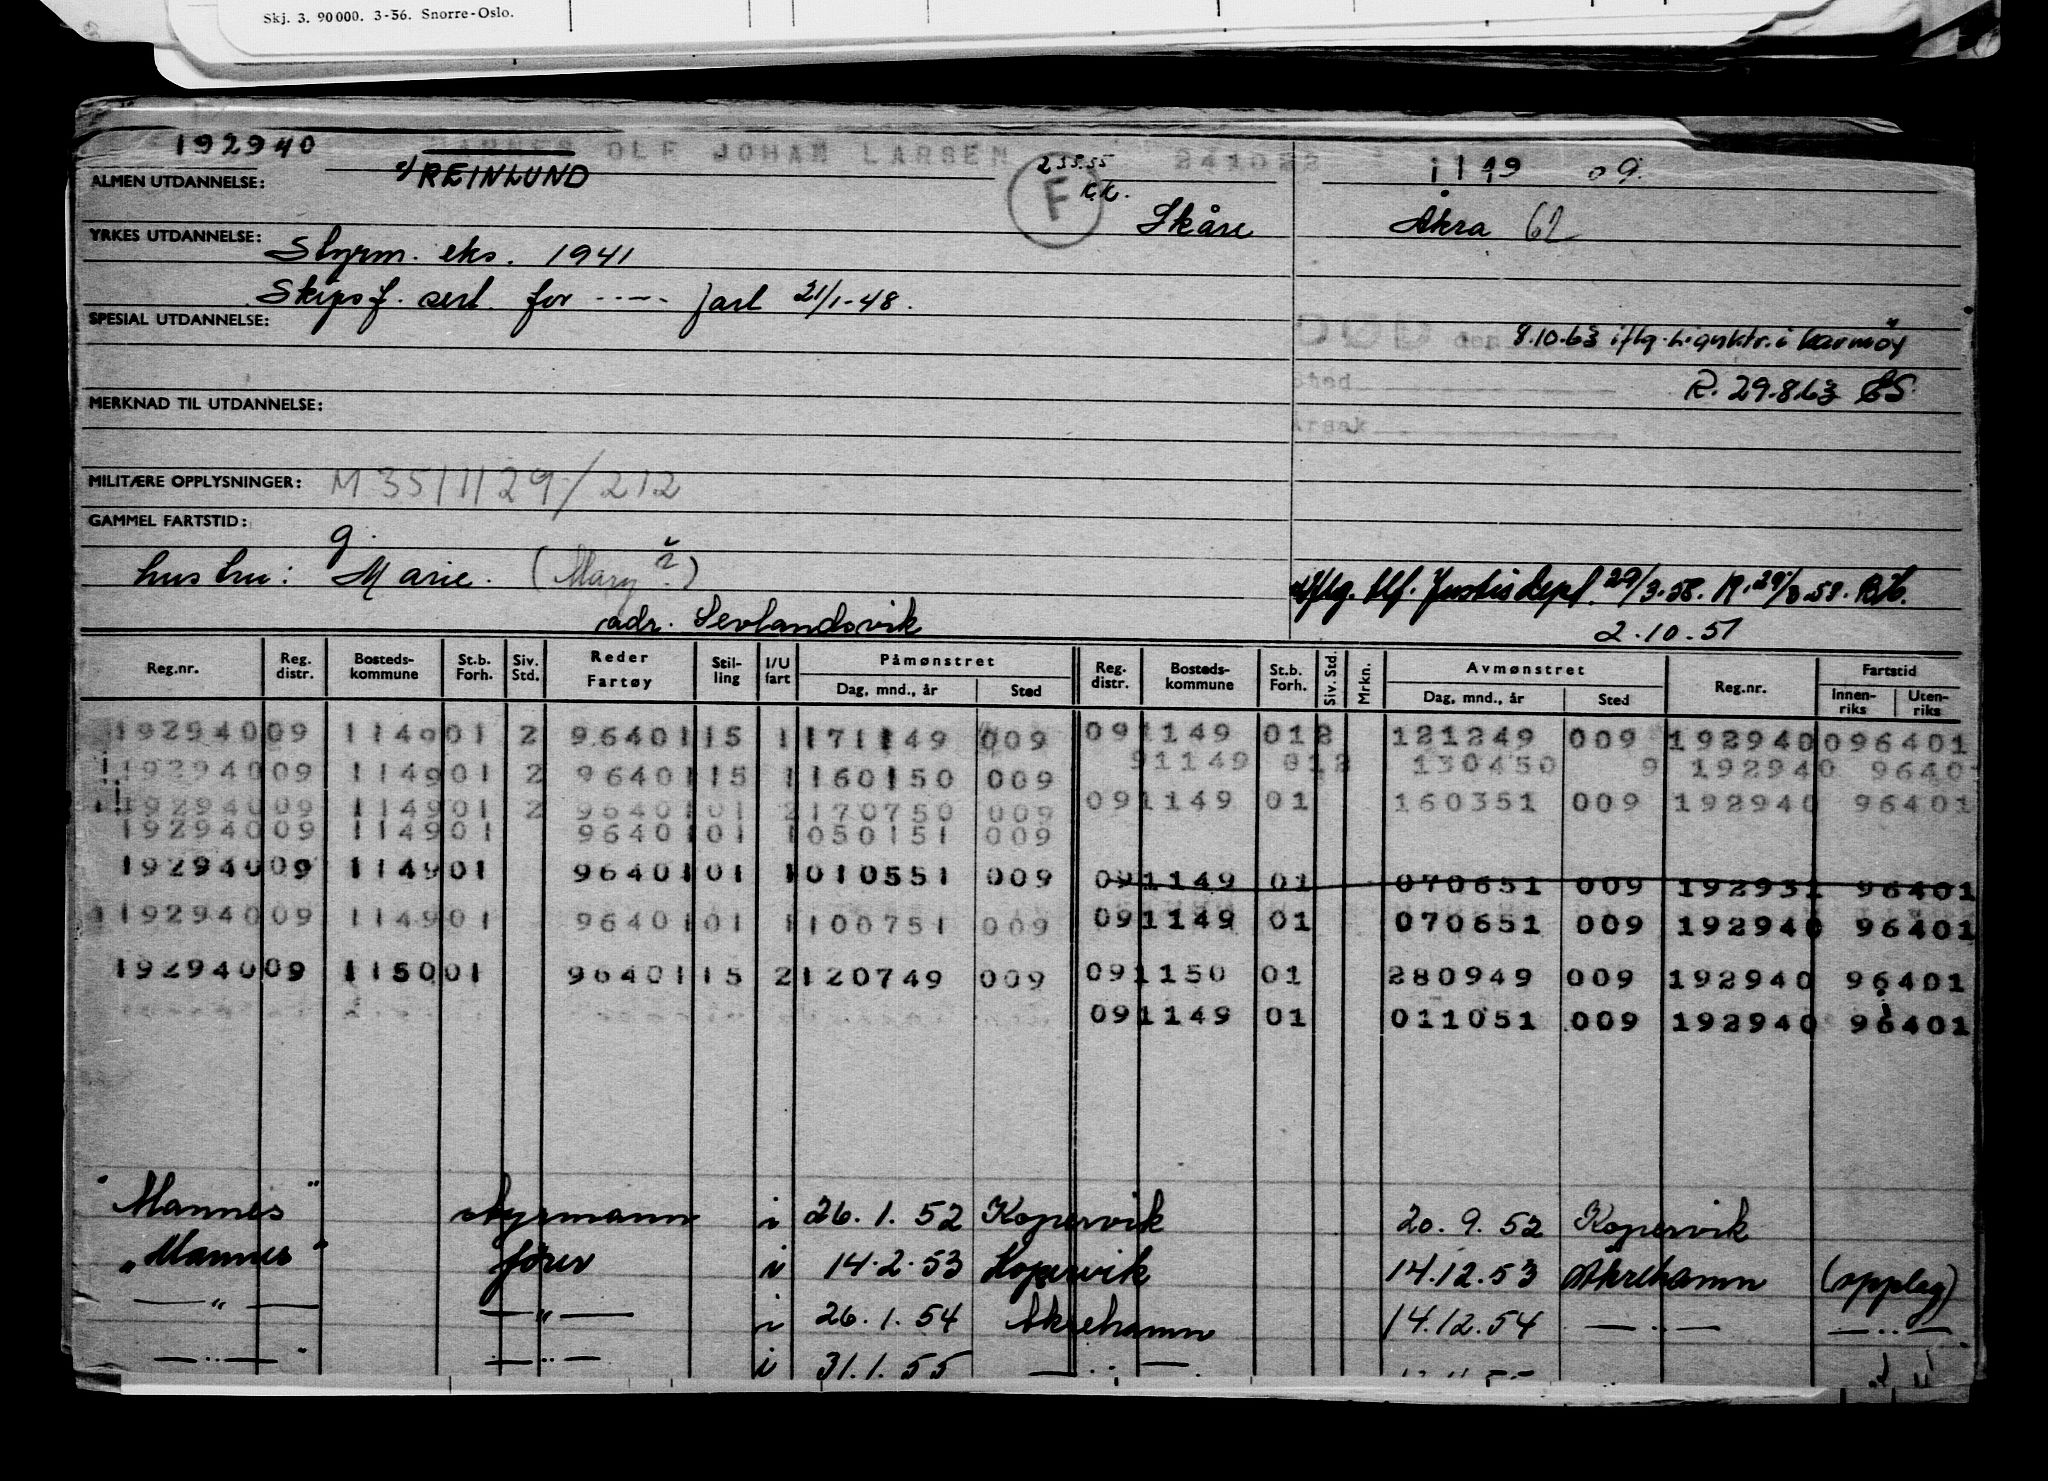 Skj. 3. 90000. 3-56. Snorre-Oslo.
192940 OLE JOHAN LARSEN 241022 1119 09.
REINLUND 23555 K.K. F
ALMEN UTDANNELSE: Skåre Åkra 62
YRKES UTDANNELSE: Styrm. eks. 1941
Skipsf. sert. for ---- fart 21/1-48.
SPESIAL UTDANNELSE:
DØD den 8.10.63 iflg. Lignktr. i Karmøy
Sted R. 29.8.63 ES.
MERKNAD TIL UTDANNELSE: Årsak
MILITÆRE OPPLYSNINGER: M 3511129/212
GAMMEL FARTSTID:
g.
hustru: Marie. (Mary?)
Iflg. tlf. Justisdept. 29/3.58. R. 29/3.58. BH.
adr. Sevlandsvik
2.10.51
Reg.nr. Reg. distr. Bosteds-kommune St.b. Forh. Siv. Std. Reder Fartøy Stil-ling I/U fart Påmønstret Dag, mnd., år Sted Reg. distr. Bosteds-kommune St.b. Forh. Siv. Std. Mrkn. Avmønstret Dag, mnd., år Sted Reg.nr. Fartstid Innen-riks Uten-riks
192940 09 1149 01 2 96401 15 1 171149 009 09 1149 01 2 121249 009 192940 096401
192940 09 1149 01 2 96401 15 1 160150 009 9 1149 01 2 130450 9 192940 96401
192940 09 1149 01 2 96401 01 2 170750 009 09 1149 01 160351 009 192940 96401
192940 09 1149 01 96401 01 1 050151 009
192940 09 1149 01 96401 01 1 010551 009 09 1149 01 070651 009 192931 96401
192940 09 1149 01 96401 01 1 100751 009 09 1149 01 070651 009 192940 96401
192940 09 1150 01 96401 15 2 120749 009 09 1150 01 280949 009 192940 96401
09 1149 01 011051 009 192940 96401
"Mannes" styrmann i 26.1.52 Kopervik 20.9.52 Kopervik
"Mannes" fører i 14.2.53 Kopervik 14.12.53 Åkrehamn (opplag)
—"— —"— i 26.1.54 Åkrehamn 14.12.54 —"— —"—
—"— —"— i 31.1.55 —"—